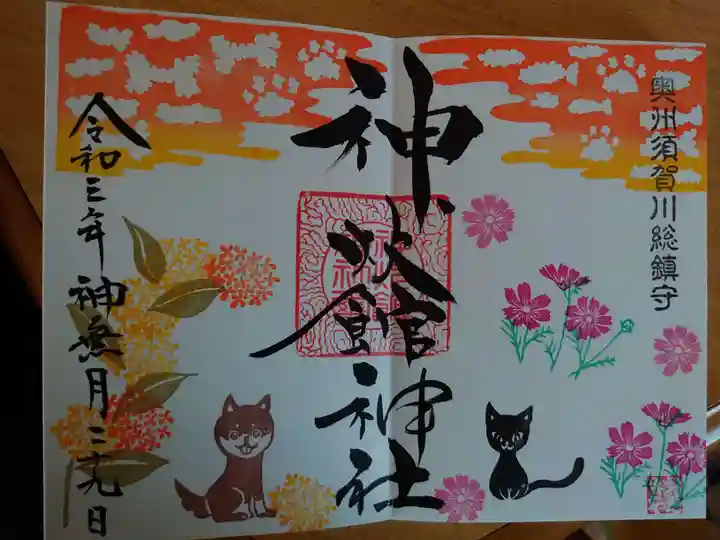 奥州須賀川総鎮守
神炊館神社
令和三年 神無月二十九日